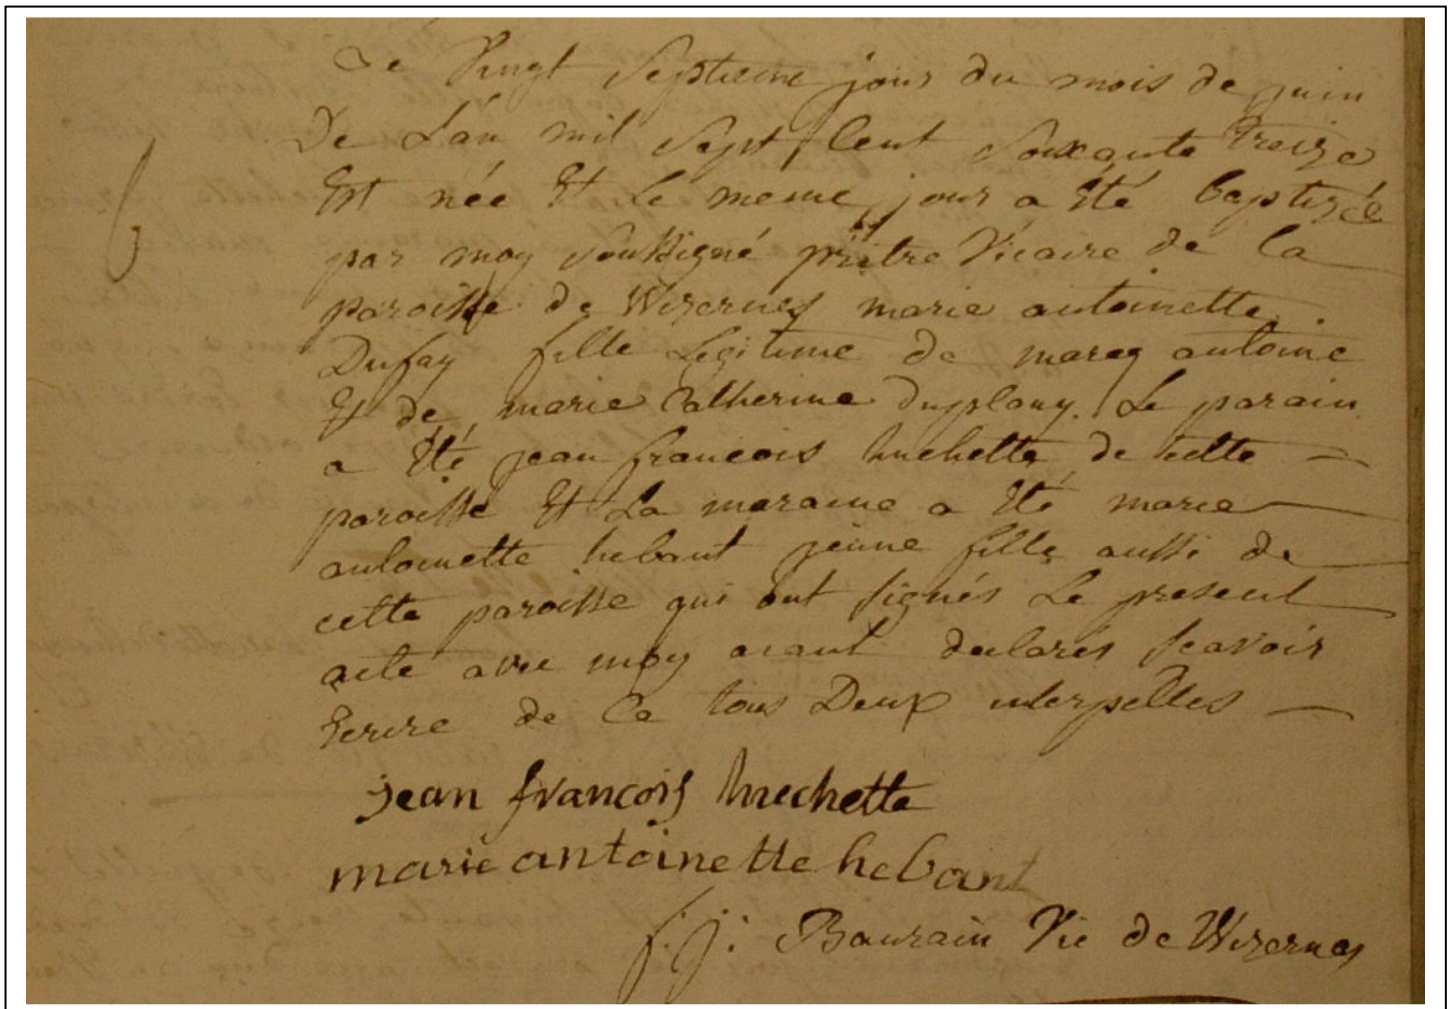 Le Vingt Septieme jour du mois de juin
De L'an mil Sept Cent Soixante Treize
Est née Et Le meme jour a Eté baptizée
par moy Soussigné prêtre Vicaire de la
paroisse de Wizernes marie antoinette
Dufay fille Legitime de marcq antoine
Et de marie Catherine duplouy. Le parain
a Eté jean francois huchette de cette
paroisse Et La maraine a Eté marie
antoinette hebant jeune fille aussi de
cette paroisse qui ont signés Le present
acte avec moy aiant declarés scavoir
Ecrire de Ce tous Deux interpellés
jean francois huchette
marie antoinette hebant
j: j: Baurain Vic de Wizernes